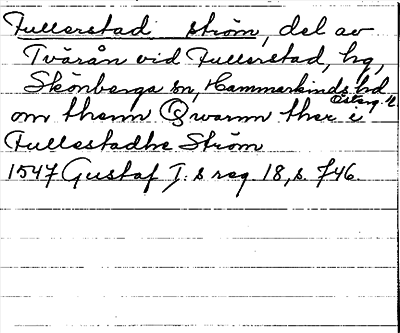 Fullerstad ström, del av
Tvärån vid Fullerstad, hg,
Skönberga sn, Hammarkinds hd
Österg. l.
om themn Qwarnn ther i
Fullestadhe Ström
1547 Gustaf I:s reg. 18, s. 746.